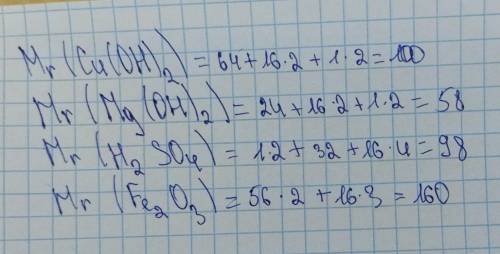 Mr (Cu(OH)₂) = 64+16·2+1·2=100
Mr (Mg(OH)₂)= 24+16·2+1·2 = 58
Mr (H₂SO₄) = 1·2+32+16·4=98
Mr (Fe₂O₃)=56·2+16·3=160